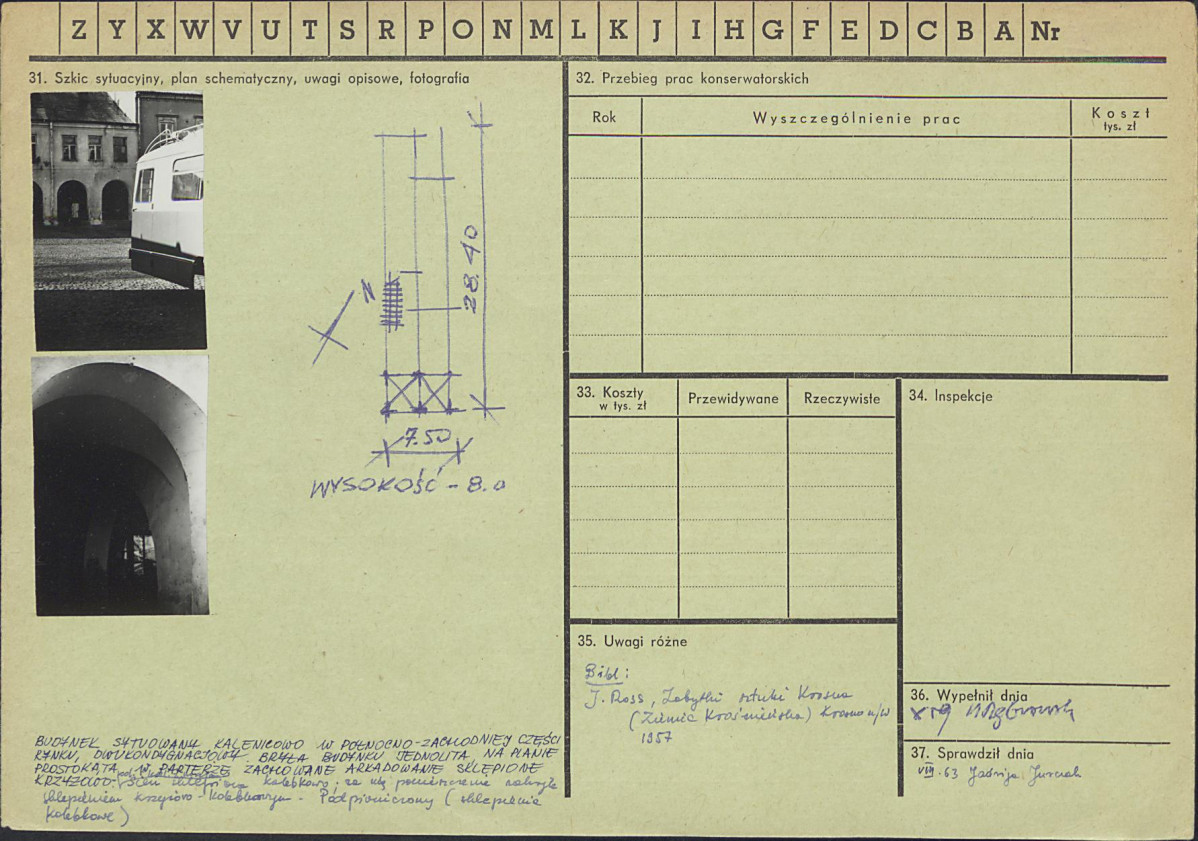 Z Y X W V U T S R P O N M L K J I H G F E D C B A Nr
31. Szkic sytuacyjny, plan schematyczny, uwagi opisowe, fotografia
N
28.40
7.50
WYSOKOŚĆ - 8.0
BUDYNEK SYTUOWANY KALENICOWO W PÓŁNOCNO-ZACHODNIEJ CZĘŚCI
RYNKU, DWUKONDYGNACJOWY. BRYŁA BUDYNKU JEDNOLITA, NA PLANIE
PROSTOKĄTA. W PARTERZE ZACHOWANE ARKADOWANIE SKLEPIONE
KRZYŻOWO. Sień kolebkowo, za nią pomieszczenie nakryte
sklepieniem krzyżowo-kolebkowym. Podpiwniczony (sklepienia
kolebkowe)
32. Przebieg prac konserwatorskich
Rok
Wyszczególnienie prac
Koszt
tys. zł
33. Koszty
w tys. zł
Przewidywane
Rzeczywiste
34. Inspekcje
35. Uwagi różne
Bibl:
J. Ross, Zabytki sztuki Krosna
(Ziemia Krośnieńska) Krosno n/W
1957
36. Wypełnił dnia
37. Sprawdził dnia
VIII-63 Jadwiga